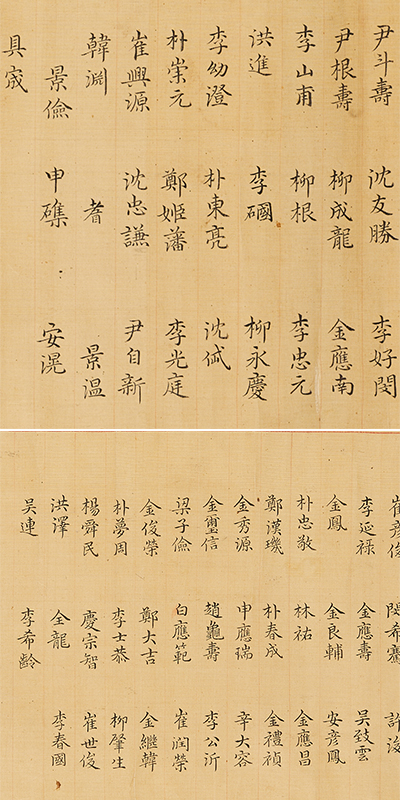 尹斗壽 沈友勝 李好閔
尹根壽 柳成龍 金應南
李山甫 柳根 李忠元
洪進 李𥕏 柳永慶
李幼澄 朴東亮 沈岱
朴崇元 鄭姬藩 李光庭
崔興源 沈忠謙 尹自新
韓淵 耆 景溫
景儉 申磼 安滉
具宬
崔彦俊 閔希騫 許浚
李延祿 金應壽 吳致雲
金鳳 金良輔 安彦鳳
朴忠敬 林祐 金應昌
鄭漢璣 朴春成 金禮禎
金秀源 申應瑞 辛大容
金璽信 趙龜壽 李公沂
梁子儉 白應範 崔潤榮
金俊榮 鄭大吉 金繼韓
朴夢周 李士恭 柳肇生
楊舜民 慶宗智 崔世俊
洪澤 全龍 李春國
吳連 李希齡